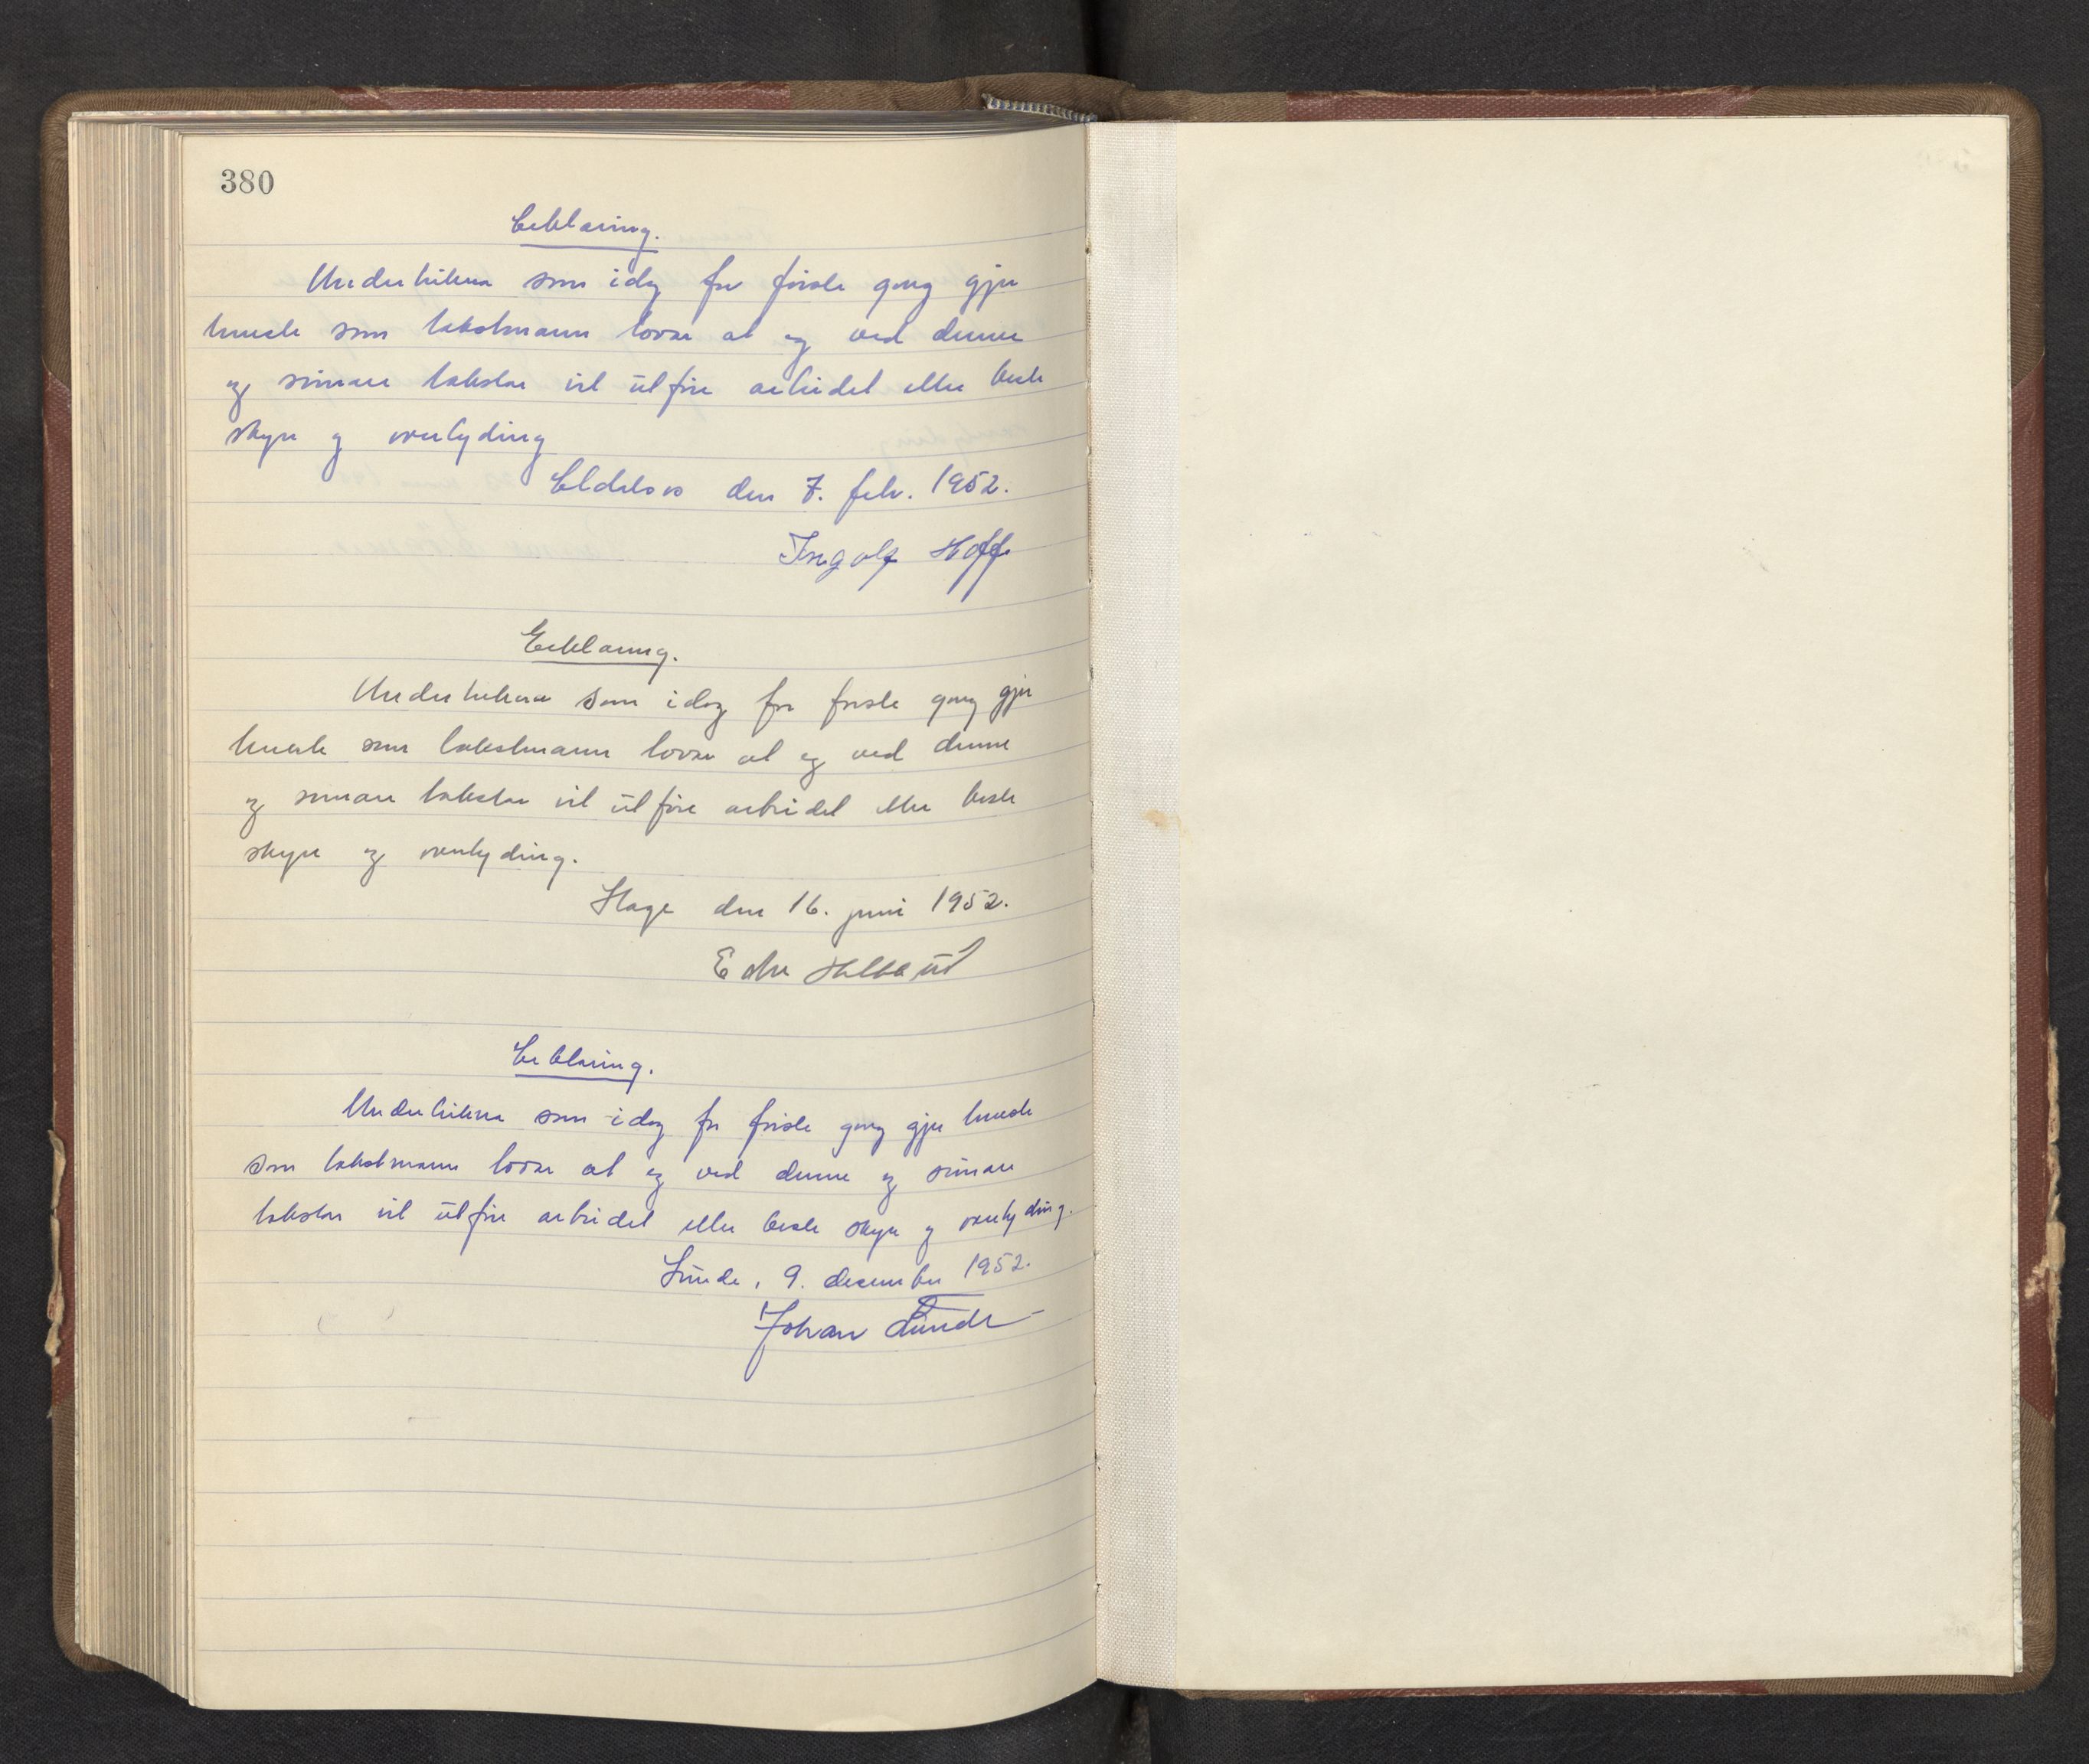 380
Erklæring.
Underteikna som idag for fyrste gang gjer
teneste som takstmann lovar at eg ved denne
og seinare takstar vil utføre arbeidet etter beste
skjøn og overtyding
den 7. febr. 1952.
Ingolf Hoff
Erklæring.
Underteikna som idag for fyrste gang gjer
teneste som takstmann lovar at eg ved denne
og seinare takstar vil utføre arbeidet etter beste
skjøn og overtyding.
Hage den 16. juni 1952.
Erklæring.
Underteikna som idag for fyrste gang gjer teneste
som takstmann lovar at eg ved denne og seinare
takstar vil utføre arbeidet etter beste skjøn og overtyding.
Sunde, 9. desember 1952.
Johan Sunde